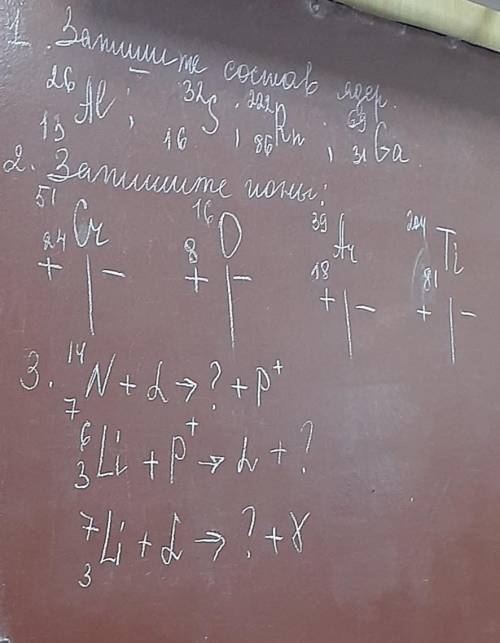 1. Запишите состав ядер.
²⁶₁₃Al; ³²₁₆S; ²²²₈₆Rn; ⁶⁹₃₁Ga.
2. Запишите ионы:
⁵¹₂₄Cr ¹⁶₈O ³⁹₁₈Ar ²⁰⁴₈₁Ti
+|− +|− +|− +|−
3. ¹⁴₇N + α → ? + p⁺
⁶₃Li + p⁺ → α + ?
⁷₃Li + α → ? + γ